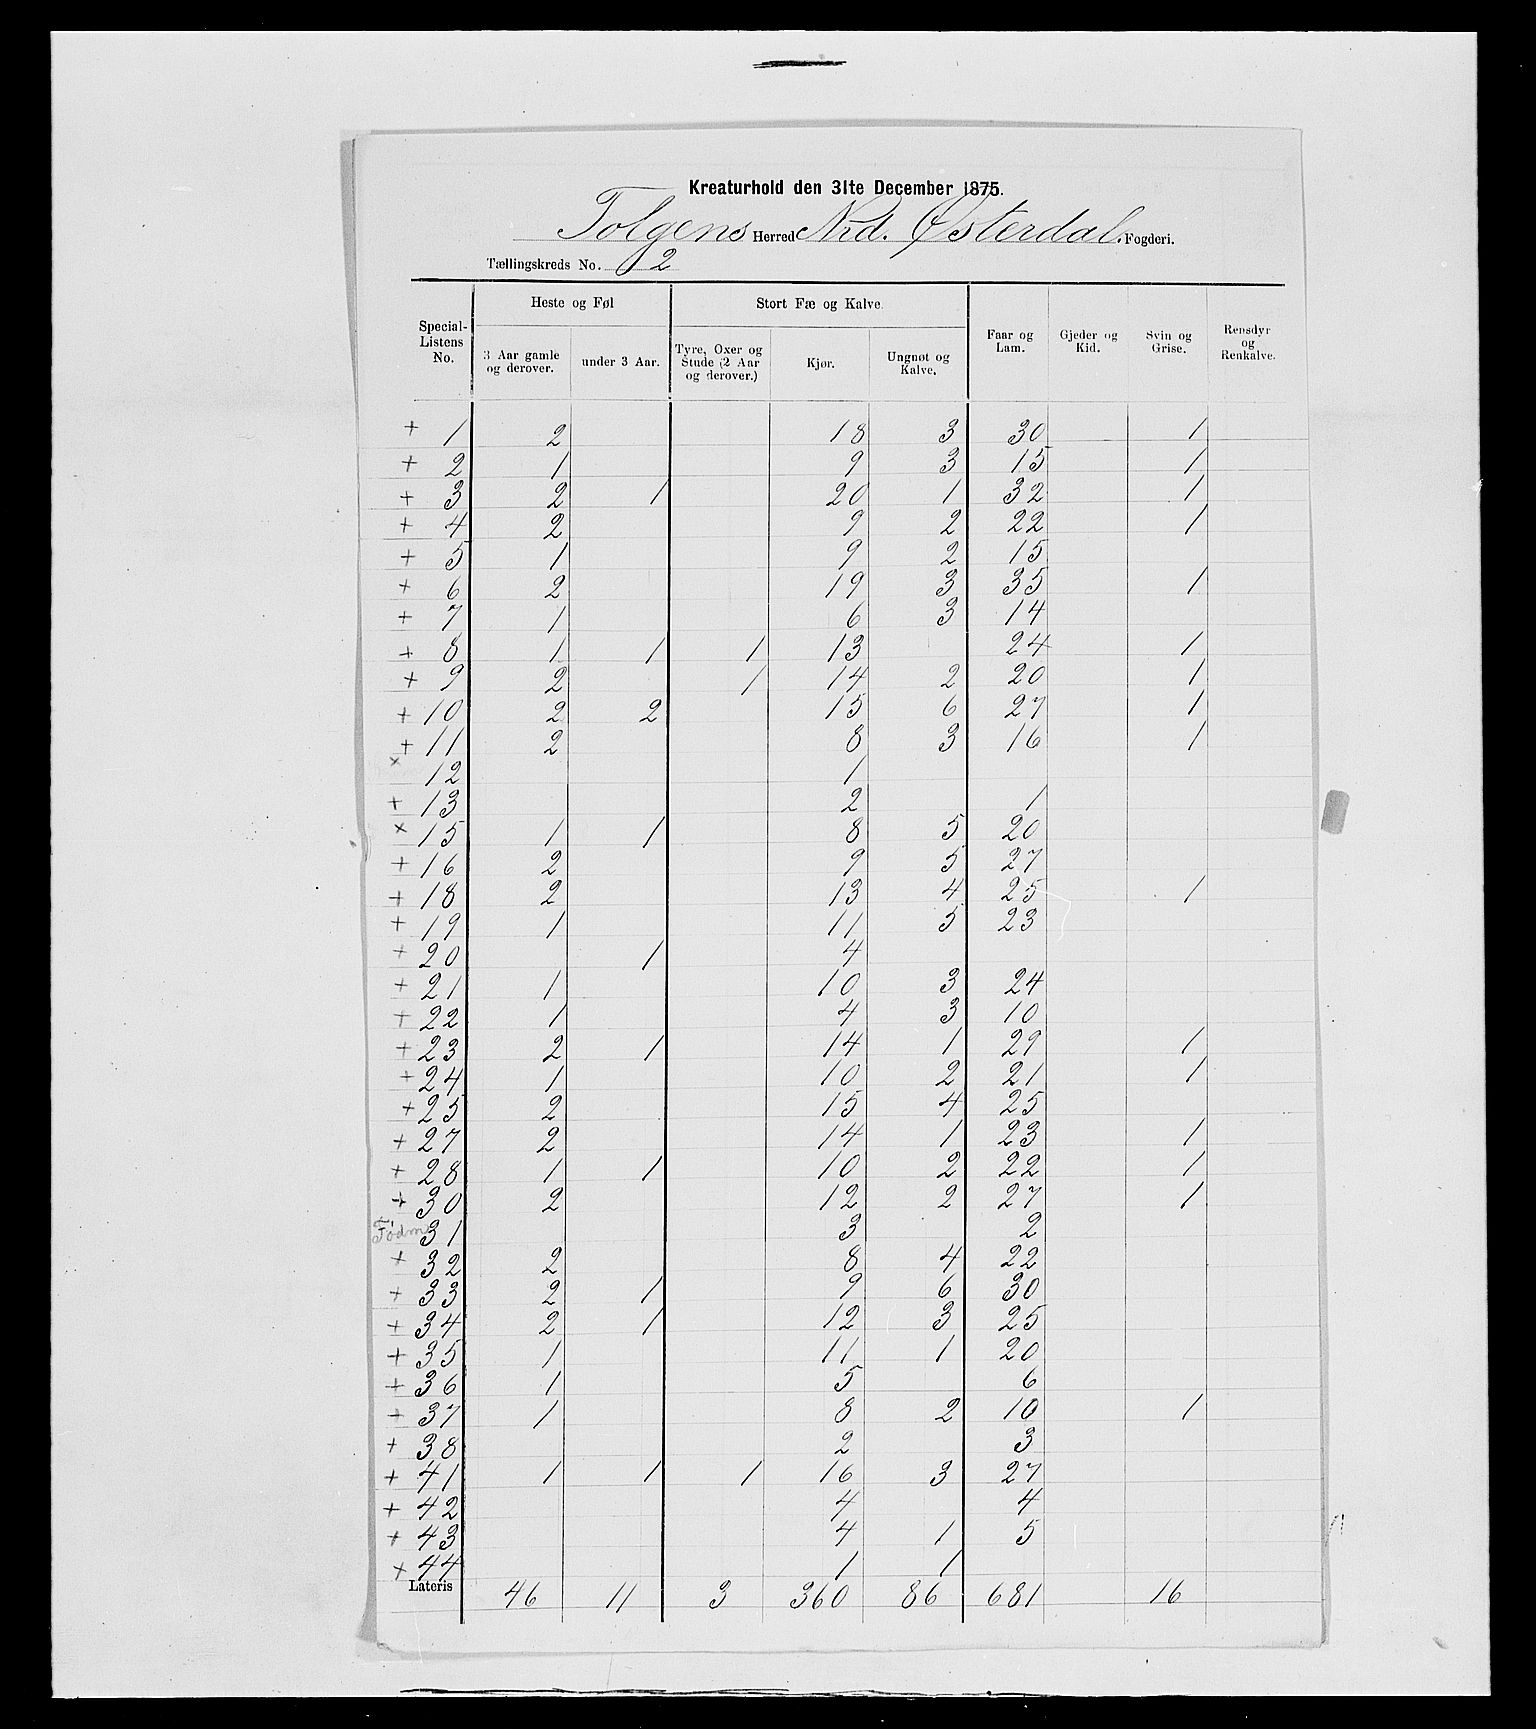 Kreaturhold den 31te December 1875.
Tolgens Herred Nrd. Østerdal. Fogderi.
Tællingskreds No. 2
Special-Listens No. | Heste og Føl | Stort Fæ og Kalve. | Faar og Lam. | Gjeder og Kid. | Svin og Grise. | Rensdyr og Renkalve.
3 Aar gamle og derover. | under 3 Aar. | Tyre, Oxer og Stude (2 Aar og derover.) | Kjør. | Ungnøt og Kalve.
+ 1 | 2 | | | 18 | 3 | 30 | | 1 |
+ 2 | 1 | | | 9 | 3 | 15 | | 1 |
+ 3 | 2 | 1 | | 20 | 1 | 32 | | 1 |
+ 4 | 2 | | | 9 | 2 | 22 | | 1 |
+ 5 | 1 | | | 9 | 2 | 15 | | |
+ 6 | 2 | | | 19 | 3 | 35 | | 1 |
+ 7 | 1 | | | 6 | 3 | 14 | | |
+ 8 | 1 | 1 | 1 | 13 | | 24 | | 1 |
+ 9 | 2 | | 1 | 14 | 2 | 20 | | 1 |
+ 10 | 2 | 2 | | 15 | 6 | 27 | | 1 |
+ 11 | 2 | | | 8 | 3 | 16 | | 1 |
× 12 | | | | 1 | | | | |
+ 13 | | | | 2 | | 1 | | |
× 15 | 1 | 1 | | 8 | 5 | 20 | | |
+ 16 | 2 | | | 9 | 5 | 27 | | |
+ 18 | 2 | | | 13 | 4 | 25 | | 1 |
+ 19 | 1 | | | 11 | 5 | 23 | | |
+ 20 | | 1 | | 4 | | | | |
+ 21 | 1 | | | 10 | 3 | 24 | | |
+ 22 | 1 | | | 4 | 3 | 10 | | |
+ 23 | 2 | 1 | | 14 | 1 | 29 | | 1 |
+ 24 | 1 | | | 10 | 2 | 21 | | 1 |
+ 25 | 2 | | | 15 | 4 | 25 | | |
+ 27 | 2 | | | 14 | 1 | 23 | | 1 |
+ 28 | 1 | 1 | | 10 | 2 | 22 | | 1 |
+ 30 | 2 | | | 12 | 2 | 27 | | 1 |
31 | | | | 3 | | 2 | | |
+ 32 | 2 | | | 8 | 4 | 22 | | |
+ 33 | 2 | 1 | | 9 | 6 | 30 | | |
+ 34 | 2 | 1 | | 12 | 3 | 25 | | |
+ 35 | 1 | | | 11 | 1 | 20 | | |
+ 36 | 1 | | | 5 | | 6 | | |
+ 37 | 1 | | | 8 | 2 | 10 | | 1 |
+ 38 | | | | 2 | | 3 | | |
+ 41 | 1 | 1 | 1 | 16 | 3 | 27 | | |
+ 42 | | | | 4 | | 4 | | |
+ 43 | | | | 4 | 1 | 5 | | |
+ 44 | | | | 1 | 1 | | | |
Lateris | 46 | 11 | 3 | 360 | 86 | 681 | | 16 |